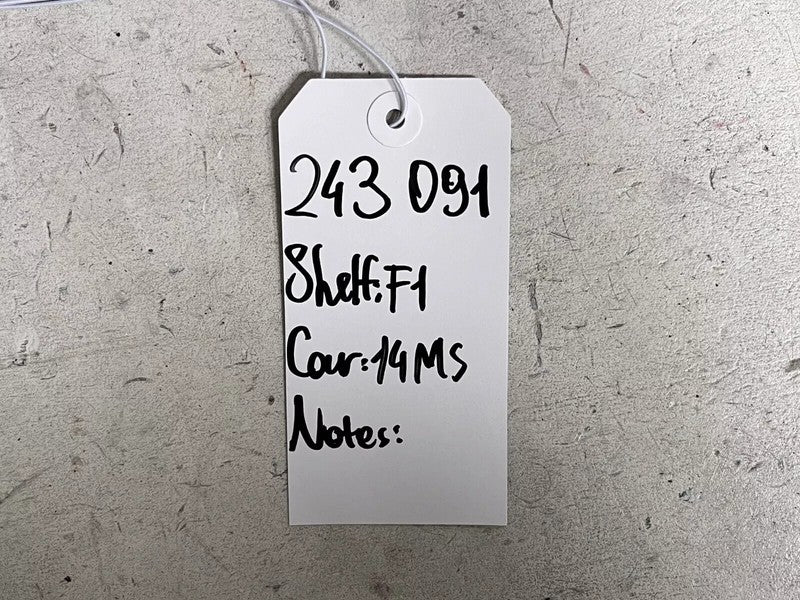 243 091
Shelf: F1
Car: 14MS
Notes: